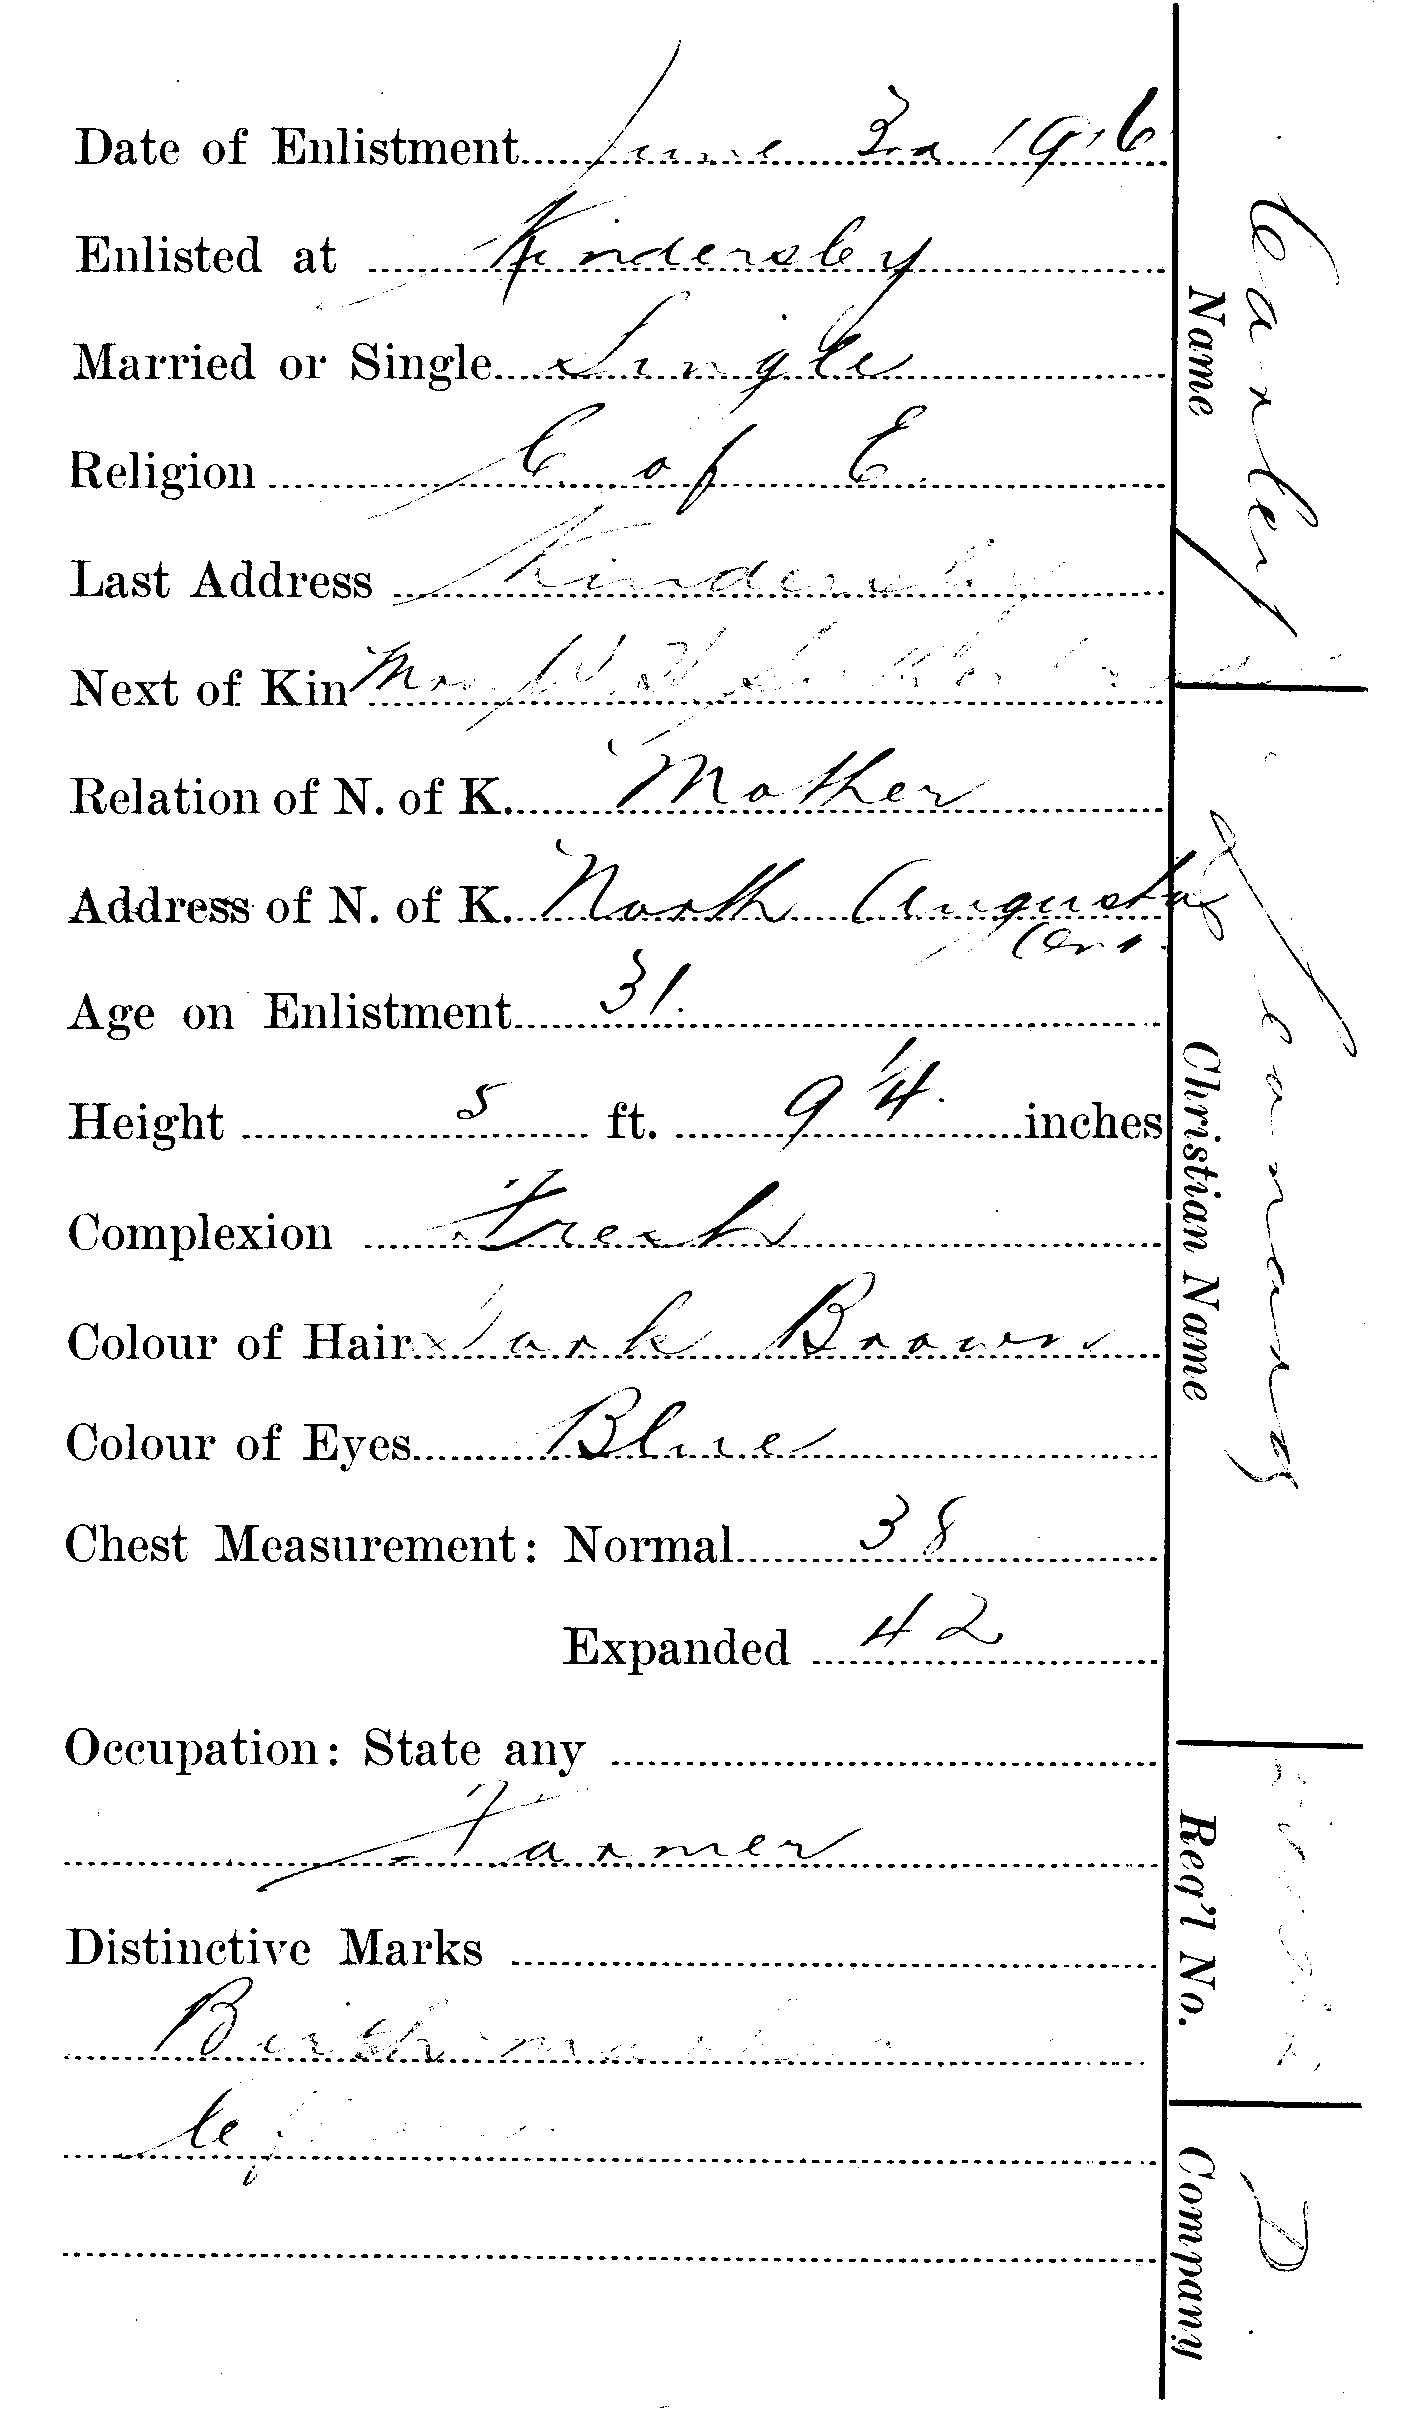 Date of Enlistment June 3rd 1916
Enlisted at Kindersley
Married or Single Single
Religion C of E.
Last Address Kindersley
Next of Kin Mrs W. H.
Relation of N. of K. Mother
Address of N. of K. North Augusta
Ont.
Age on Enlistment 31.
Height 5 ft. 9 1/4. inches
Complexion Fresh
Colour of Hair Dark Brown
Colour of Eyes Blue
Chest Measurement: Normal 38
Expanded 42
Occupation: State any
Farmer
Distinctive Marks
Birth mark
Name Carley
Christian Name
Req'l No.
Company D